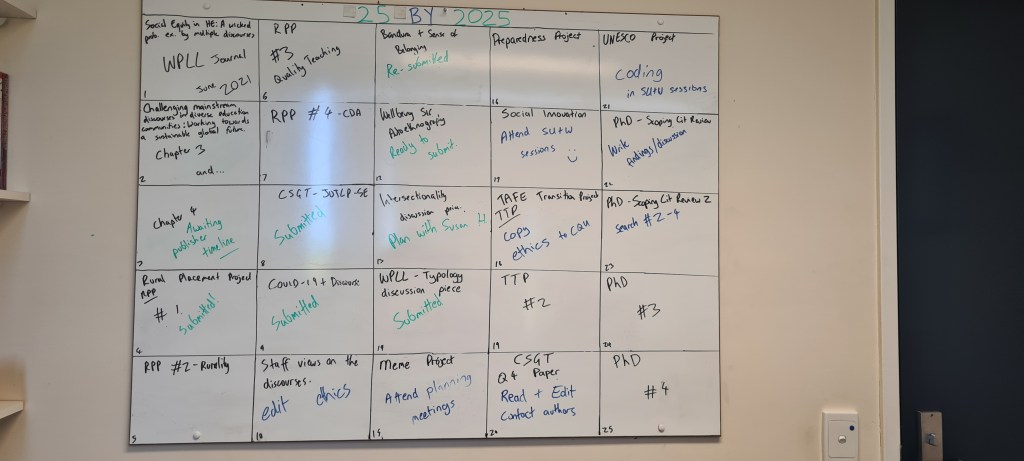 25 BY 2025
Social Equity in HE: A wicked
prob. ex. by multiple discourses
WPLL Journal
June 2021
1
Challenging mainstream
discourses in diverse education
communities: Working towards
a sustainable global future.
Chapter 3
and...
2
Chapter 4
Awaiting
publisher
timeline
3
Rural Placement Project
RPP
# 1
Submitted!
4
RPP #2 - Rurality
5
RPP
#3
Quality Teaching
6
RPP #4 - CDA
7
CSGT - JUTLP - SE
Submitted
8
COVID-19 + Discourse
Submitted
9
Staff views on the
discourses.
edit ethics
10
Bandura + Sense of
Belonging
Re-submitted
Wellbeing SIG
Autoethnography
Ready to
submit.
12
Intersectionality
discussion piece.
Plan with Susan H.
13
WPLL - Typology
discussion piece
Submitted
14
Meme Project
Attend planning
meetings
15
Preparedness Project
16
Social Innovation
Attend SU+W
sessions
17
TAFE Transition Project
TTP
copy
ethics to CQU
18
TTP
#2
19
CSGT
Q4 Paper
Read + Edit
Contact authors
20
UNESCO Project
Coding
in SU+W sessions
21
PhD - Scoping Lit Review
Write
findings/discussion
22
PhD - Scoping Lit Review 2
search #2-4
23
PhD
#3
24
PhD
#4
25